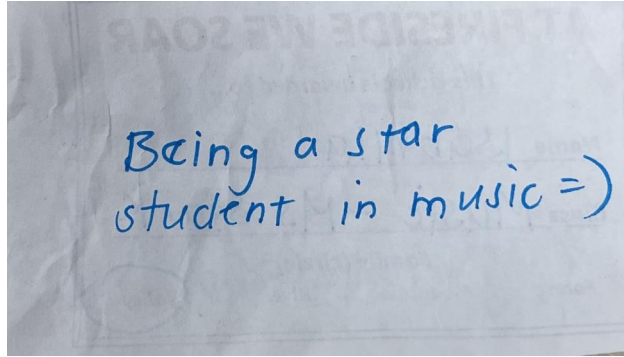 Being a star
student in music =)